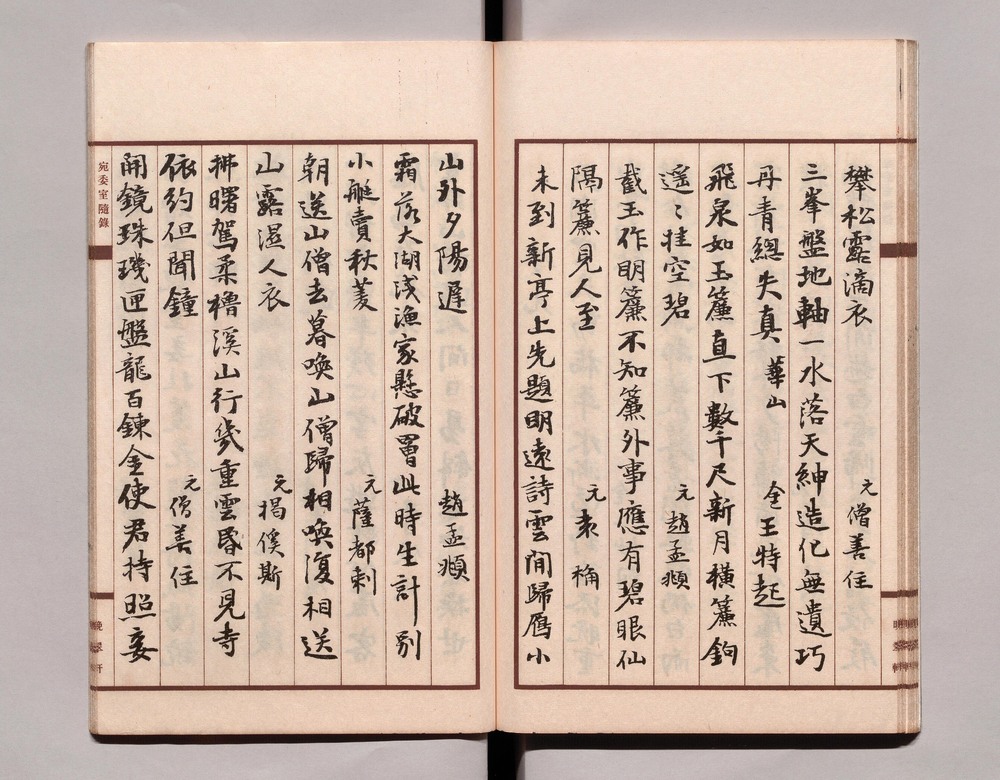 攀松露滴衣
元僧善住
三峯盤地軸一水落天紳造化無遺巧
丹青總失真
華山
金王特起
飛泉如玉簾直下數千尺新月橫簾鉤
遥〻挂空碧
元趙孟頫
截玉作明簾不知簾外事應有碧眼仙
隔簾見人至
元袁桷
未到新亭上先題明遠詩雲間歸鴈小
山外夕陽遲
趙孟頫
霜落大湖淺漁家懸破罾此時生計別
小艇賣秋菱
元薩都剌
朝送山僧去暮喚山僧歸相喚復相送
山露濕人衣
元揭傒斯
拂曙駕柔櫓溪山行幾重雲昏不見寺
依約但聞鐘
元僧善住
開鏡珠璣匣盤龍百鍊金使君持照妾
宛委室隨錄
晚翠軒